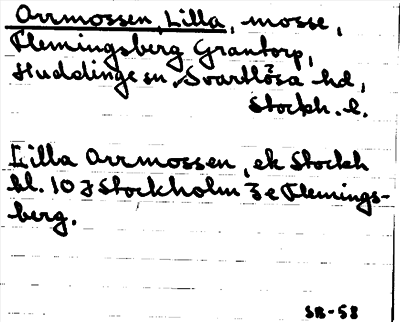 Orrmossen, Lilla, mosse,
Flemingsberg Grantorp,
Huddinge sn, Svartlösa hd,
Stockh. l.
Lilla Orrmossen, ek Stockh
bl. 10 J Stockholm 3 e Flemings-
berg.
SB-58